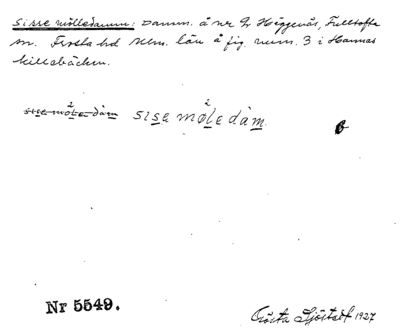 Sisse mölledamm: Damm. å nr 9 Häggenäs, Fulltofta
sn. Frosta hd Mlm. län å fig. num. 3 i Hannas
killebäcken.
sise möle dàm
Nr 5549.
Gösta Sjöstedt 1927